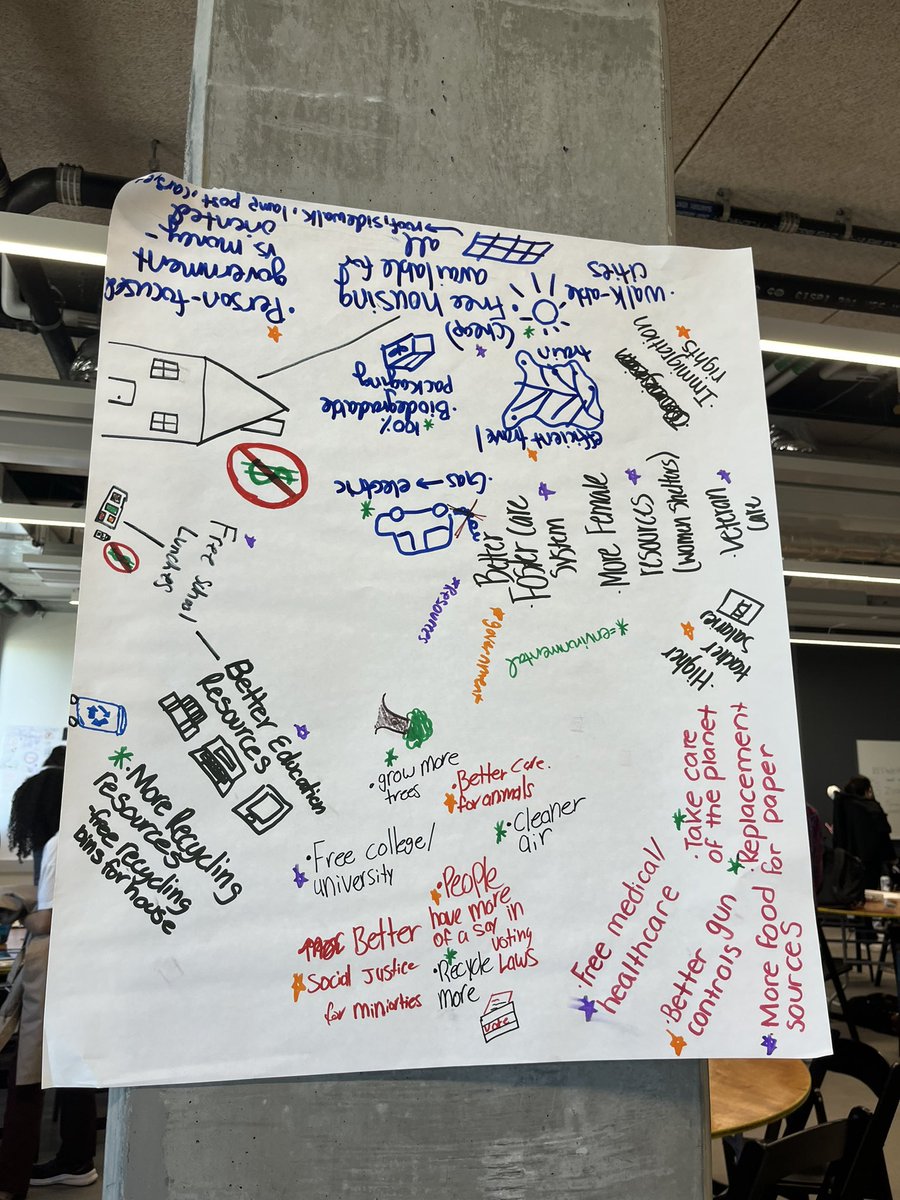 → roof, sidewalk, lamp post, cars
• Person-focused
government
vs money-
oriented
• Free housing
available for
all
(cheap)
• Walk-able
cities
• Immigration
rights
• 100%
Biodegradable
packaging
efficient travel
train
• Gas → electric
• Better
Foster Care
System
• More Female
resources
(women shelters)
• Veteran
care
Free School
Lunches
*Resources
*government
*=environmental
• Higher
teacher
salarie
• Better Education
Resources
• More Recycling
resources
-free recycling
bins for house
• grow more
trees
• Better care
for animals
• Cleaner
air
• Free college/
university
• People
have more
of a say in
voting
Laws
Better
Social Justice
for miniorties
• Recycle
more
Vote
• Free medical/
healthcare
• Take care
of the planet
• Replacement
for paper
• Better gun
controls
• More Food
sources